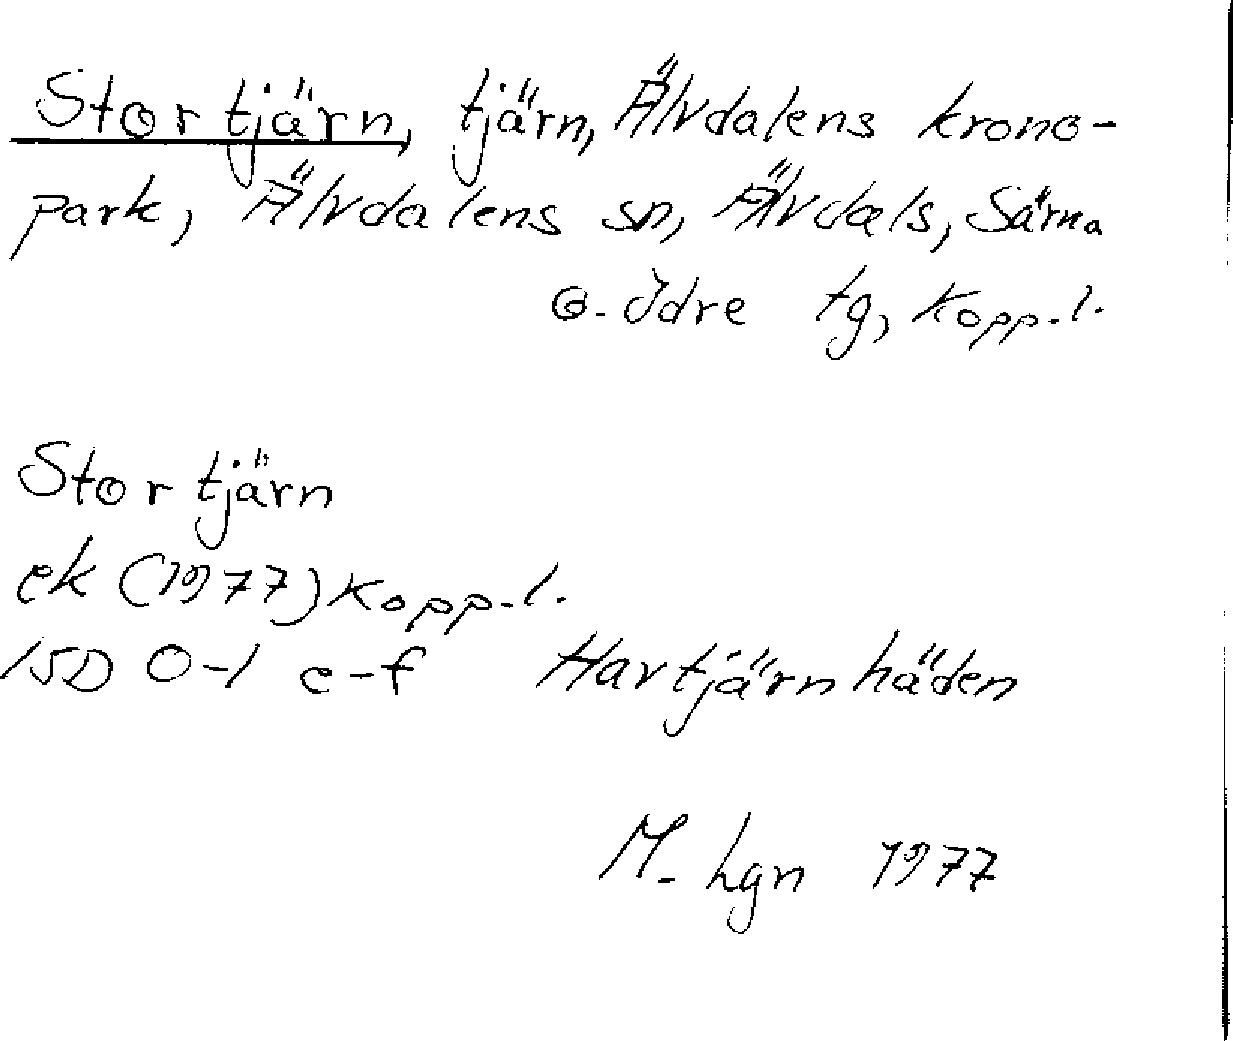 Stortjärn, tjärn, Älvdalens krono-
park, Älvdalens sn, Älvdals, Särna
o. Idre tg, Kopp. l.
Stortjärn
ek (1977) Kopp. l.
15D 0-1 e-f Havtjärnhäden
M. Lgn 1977